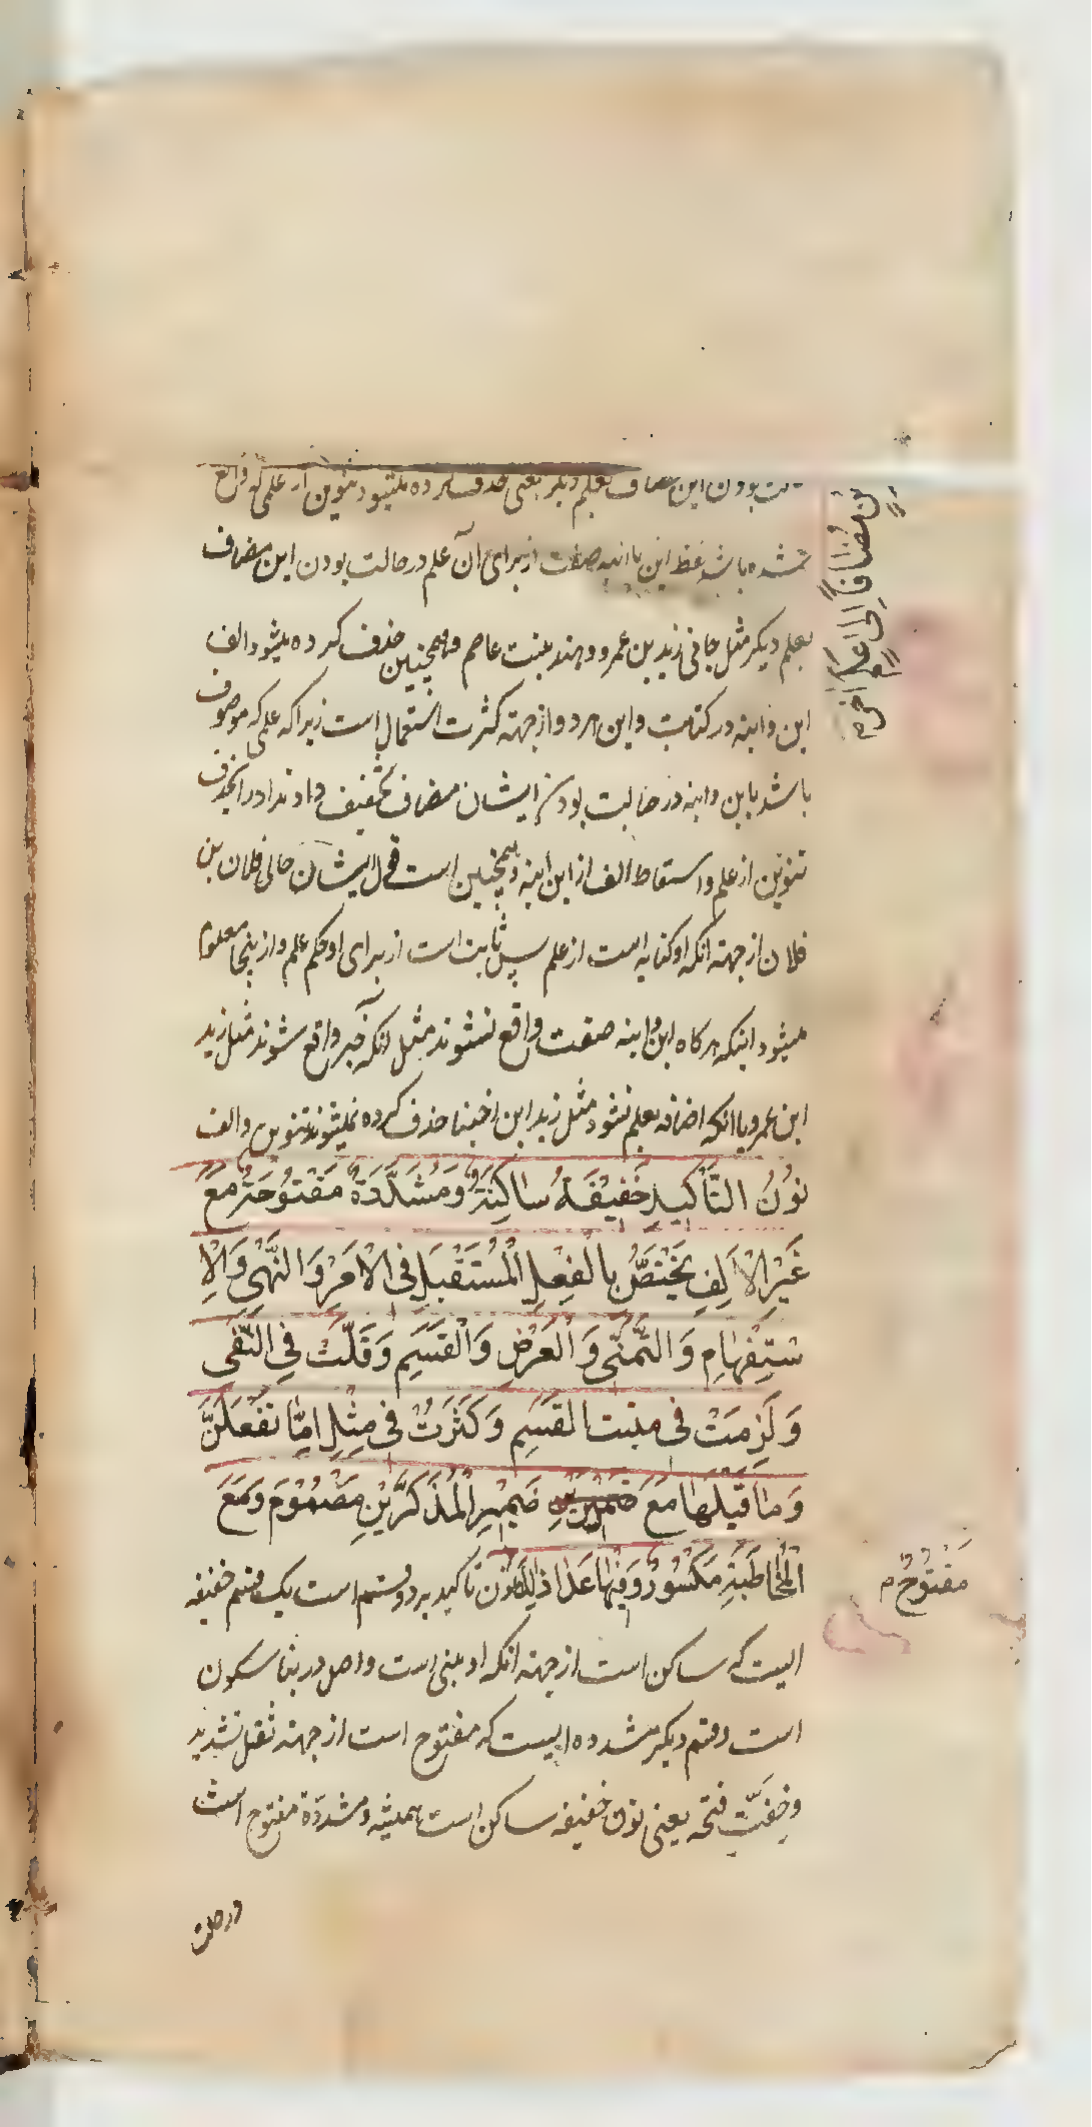 حالت بودن این مضاف بعلم دیگر یعنی حذف کرده میشود تنوین از علمی که واقع
شده باشد لفظ ابن یا ابنه صفت از برای آن علم در حالت بودن ابن مضاف
بعلم دیگر مثل جانی زید بن عمرو و هند بنت عاصم و همچنین حذف کرده میشود الف
ابن و ابنه در کتابت و این هر دو از جهته کثرت استعمال است زیراکه علمی که موصوف
باشد بابن و ابنه در حالت بودن ایشان مضاف تخفیف دادند او را بحذف
تنوین از علم و اسقاط الف از ابن ابنه و همچنین است قول ایشان جانی فلان بن
فلان از جهته انکه او کنایه است از علم پس ثابت است از برای او حکم علم و از ینجا معلوم
میشود اینکه هر کاه ابن و ابنه صفت واقع نشوند مثل انکه خبر واقع شوند مثل زید
ابن عمرو یا انکه اضافه بعلم نشود مثل زید ابن اخینا حذف کرده نمیشوند تنوین و الف
نُوْنُ التَّأْكِيدِ خَفِيْفَةٌ سٰاكِنَةٌ وَمُشَدَّدَةٌ مَفْتُوْحَةٌ مَعَ
غَيْرِ الْاَلِفِ يَخْتَصُّ بِالْفِعْلِ الْمُسْتَقْبَلِ فِي الْاَمْرِ وَالنَّهْيِ وَالْاِ
سْتِفْهٰامِ وَالتَّمَنّٰى وَالْعَرْضِ وَالْقَسَمِ وَقَلَّتْ فِي النَّفْىِ
وَلَزِمَتْ فى مثبت القَسَمِ وَكَثُرَتْ فِي مِثْلِ اِمّٰا تَفْعَلَنَّ
وَمٰا قَبْلَهٰا مَعَ ضَمِيْرِ الْمُذَكَّرِيْنِ مَضْمُوْمٌ وَمَعَ
الْمُخٰاطَبَةِ مَكْسُوْرٌ وَفِيْهٰا عَدٰا ذٰلِكَ نون تاکید بر دو قسم است یک قسم خفیفه
ایست که ساکن است از جهته انکه او مبنی است و اصل در بنا سکون
است و قسم دیکر مشدده ایست که مفتوح است از جهته ثقل تشدید
و خفیّت فتحه یعنی نون خفیفه ساکن است همیشه و مشدّدة مفتوح است
در حالت
بن مُضٰافاً اِلىٰ عَلَمٍ اٰخَرَ م
مَفْتُوْحٌ م